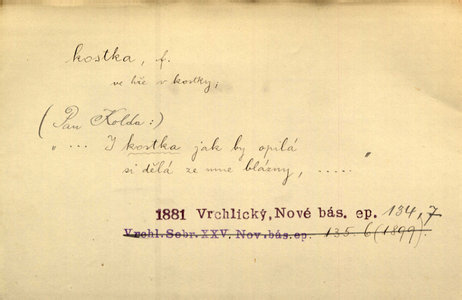 kostka, f.
ve hře v kostky;
(Pan Kolda:)
„ ... I kostka jak by opilá
si dělá ze mne blázny, ..... "
1881 Vrchlický, Nové bás. ep. 134,7
Vrchl. Sebr. XXV, Nov. bás. ep. 135. 6 (1899).